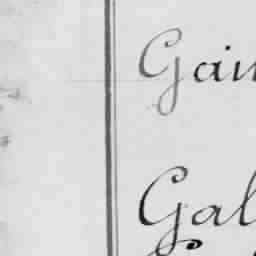 Gain
Gal